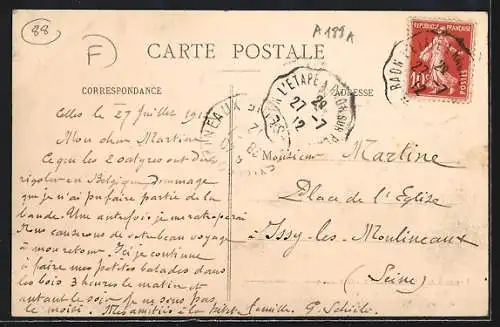 88
F
A 199 A
CARTE POSTALE
CORRESPONDANCE
ADRESSE
REPUBLIQUE FRANÇAISE
10c
POSTES
RAON L'ETAPE A RAON SUR P
27 29-7
12
MOULINEAUX
Celles le 27 Juillet 19
Mon cher Martine
Ce que les 2 ont dû
rigoler en Belgique. Dommage
que je n'ai pu faire partie de la
bande. Une autre fois je me rattraperai
Nous causerons de votre beau voyage
à mon retour. Ici je continue
à faire mes petites balades dans
les bois 3 heures le matin et
autant le soir. Je ne sors pas
le midi. Mes amitiés à la famille. G. Scheile
Monsieur Martine
Place de l'Eglise
à Issy-les-Moulineaux
(Seine)